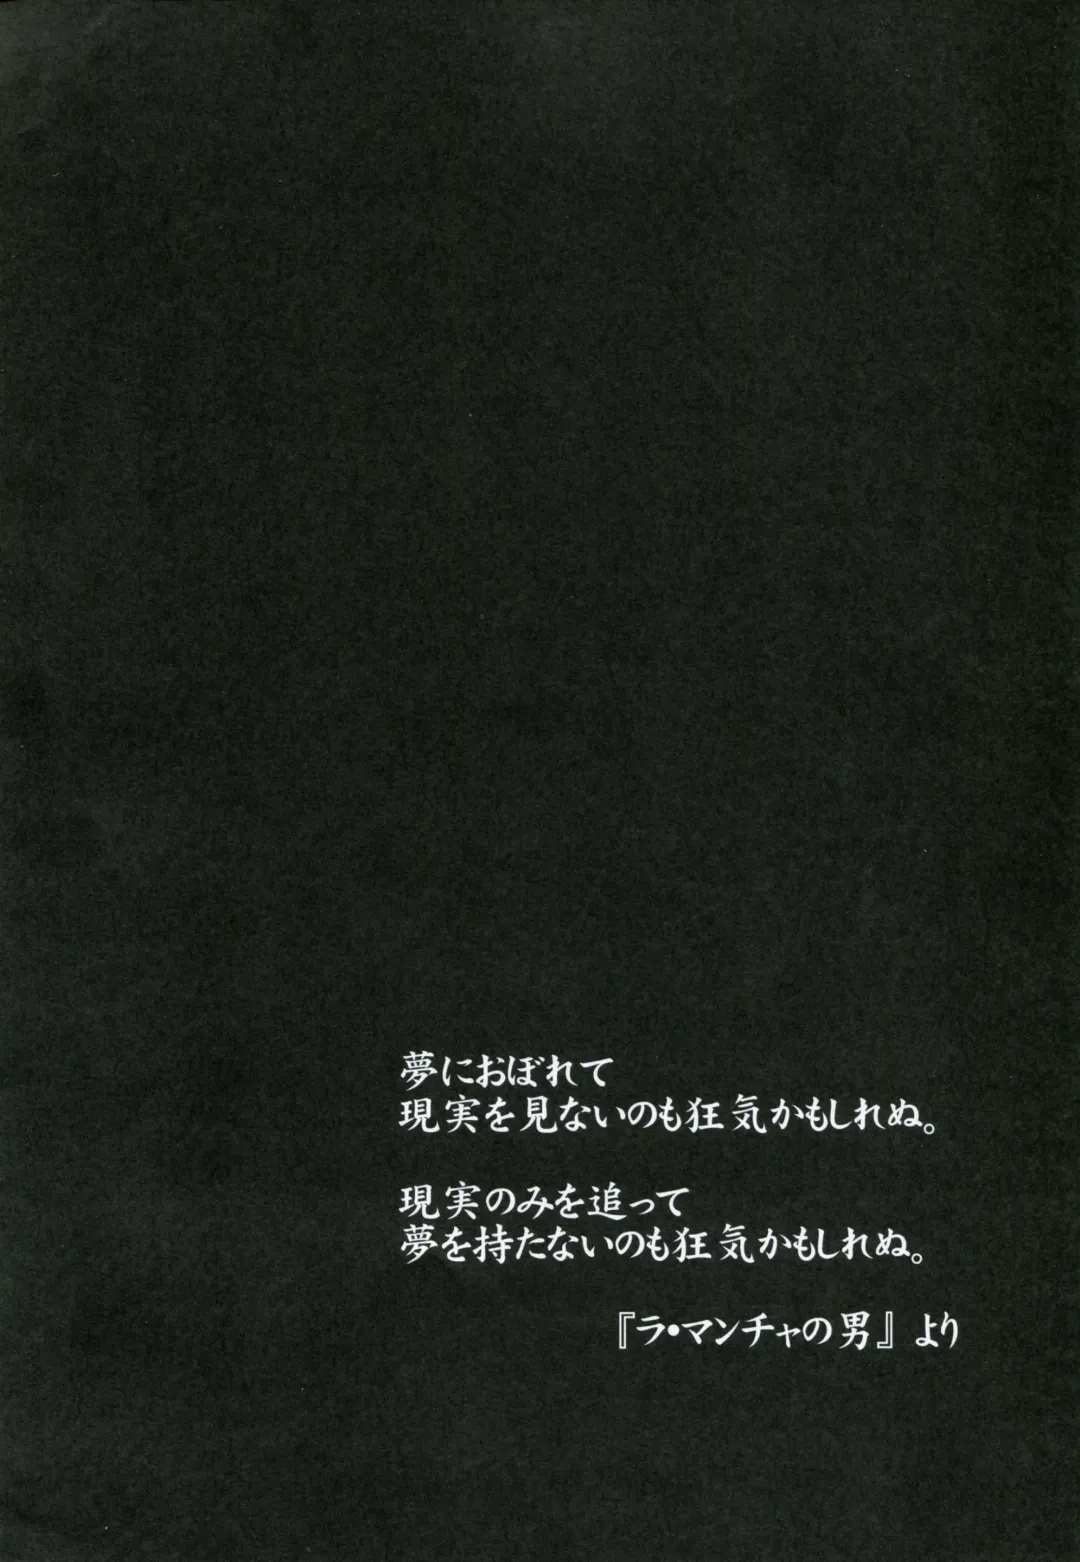 夢におぼれて
現実を見ないのも狂気かもしれぬ。
現実のみを追って
夢を持たないのも狂気かもしれぬ。
『ラ・マンチャの男』より